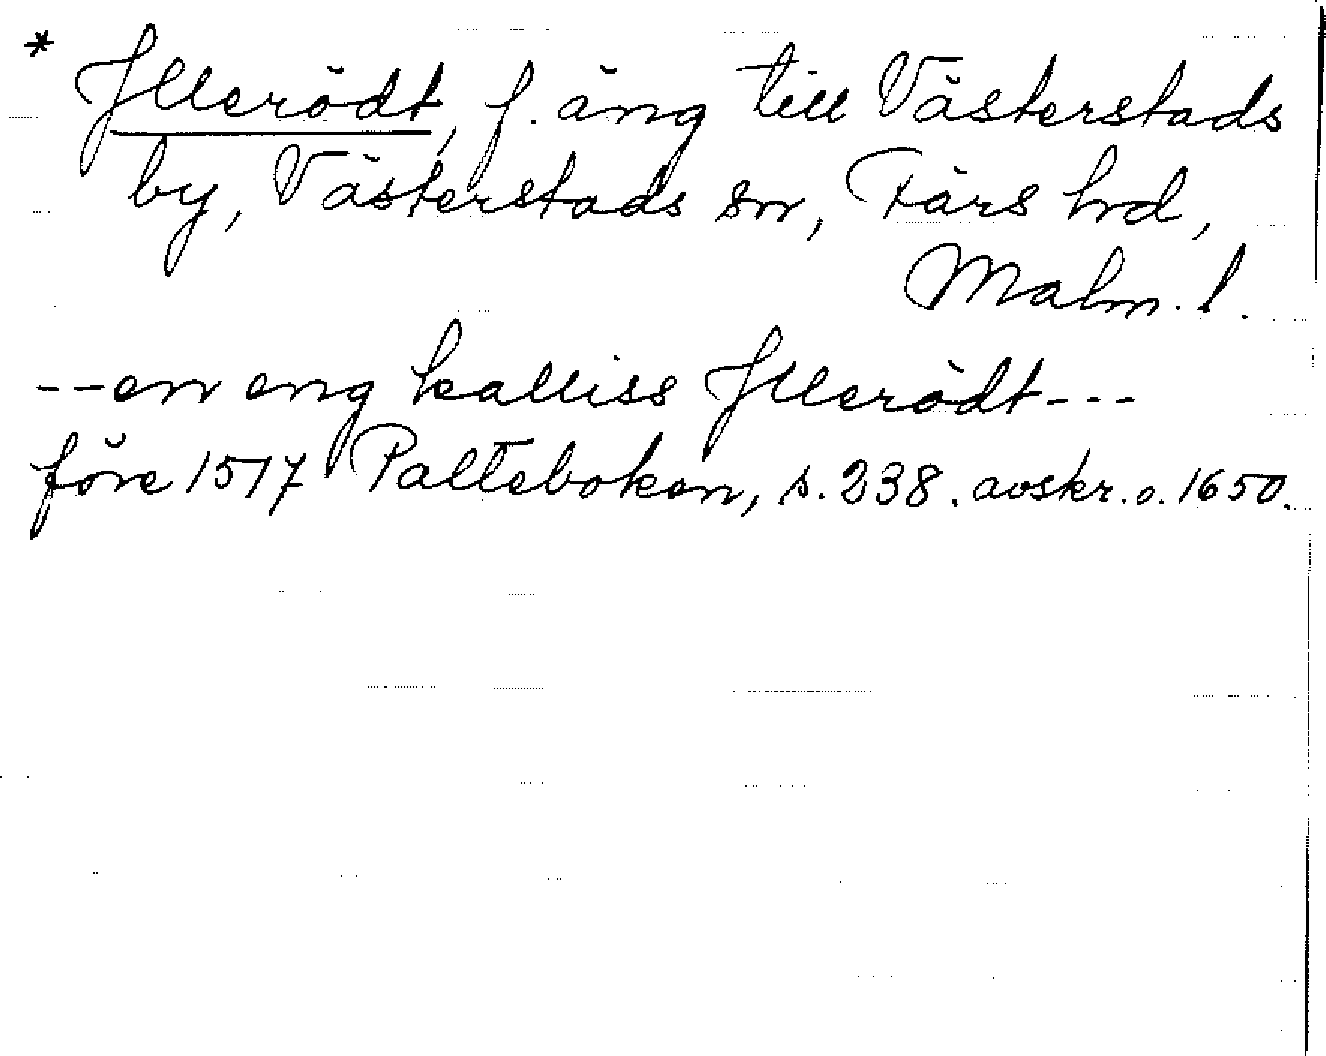 * Jllerödt, f. äng till Västerstads
by, Västerstads sn, Färs hd,
Malm. l.
--en eng kalliss Jllerödt---
före 1517 Palteboken, s. 238. avskr. o. 1650.